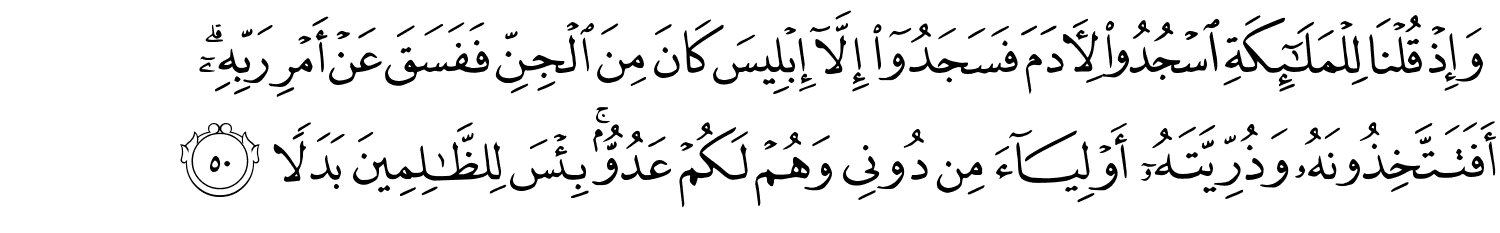 وَإِذۡ قُلۡنَا لِلۡمَلَٰٓئِكَةِ ٱسۡجُدُواْ لِأٓدَمَ فَسَجَدُوٓاْ إِلَّآ إِبۡلِيسَ كَانَ مِنَ ٱلۡجِنِّ فَفَسَقَ عَنۡ أَمۡرِ رَبِّهِۦٓۗ
أَفَتَتَّخِذُونَهُۥ وَذُرِّيَّتَهُۥٓ أَوۡلِيَآءَ مِن دُونِي وَهُمۡ لَكُمۡ عَدُوُّۢۚ بِئۡسَ لِلظَّٰلِمِينَ بَدَلٗا ٥٠